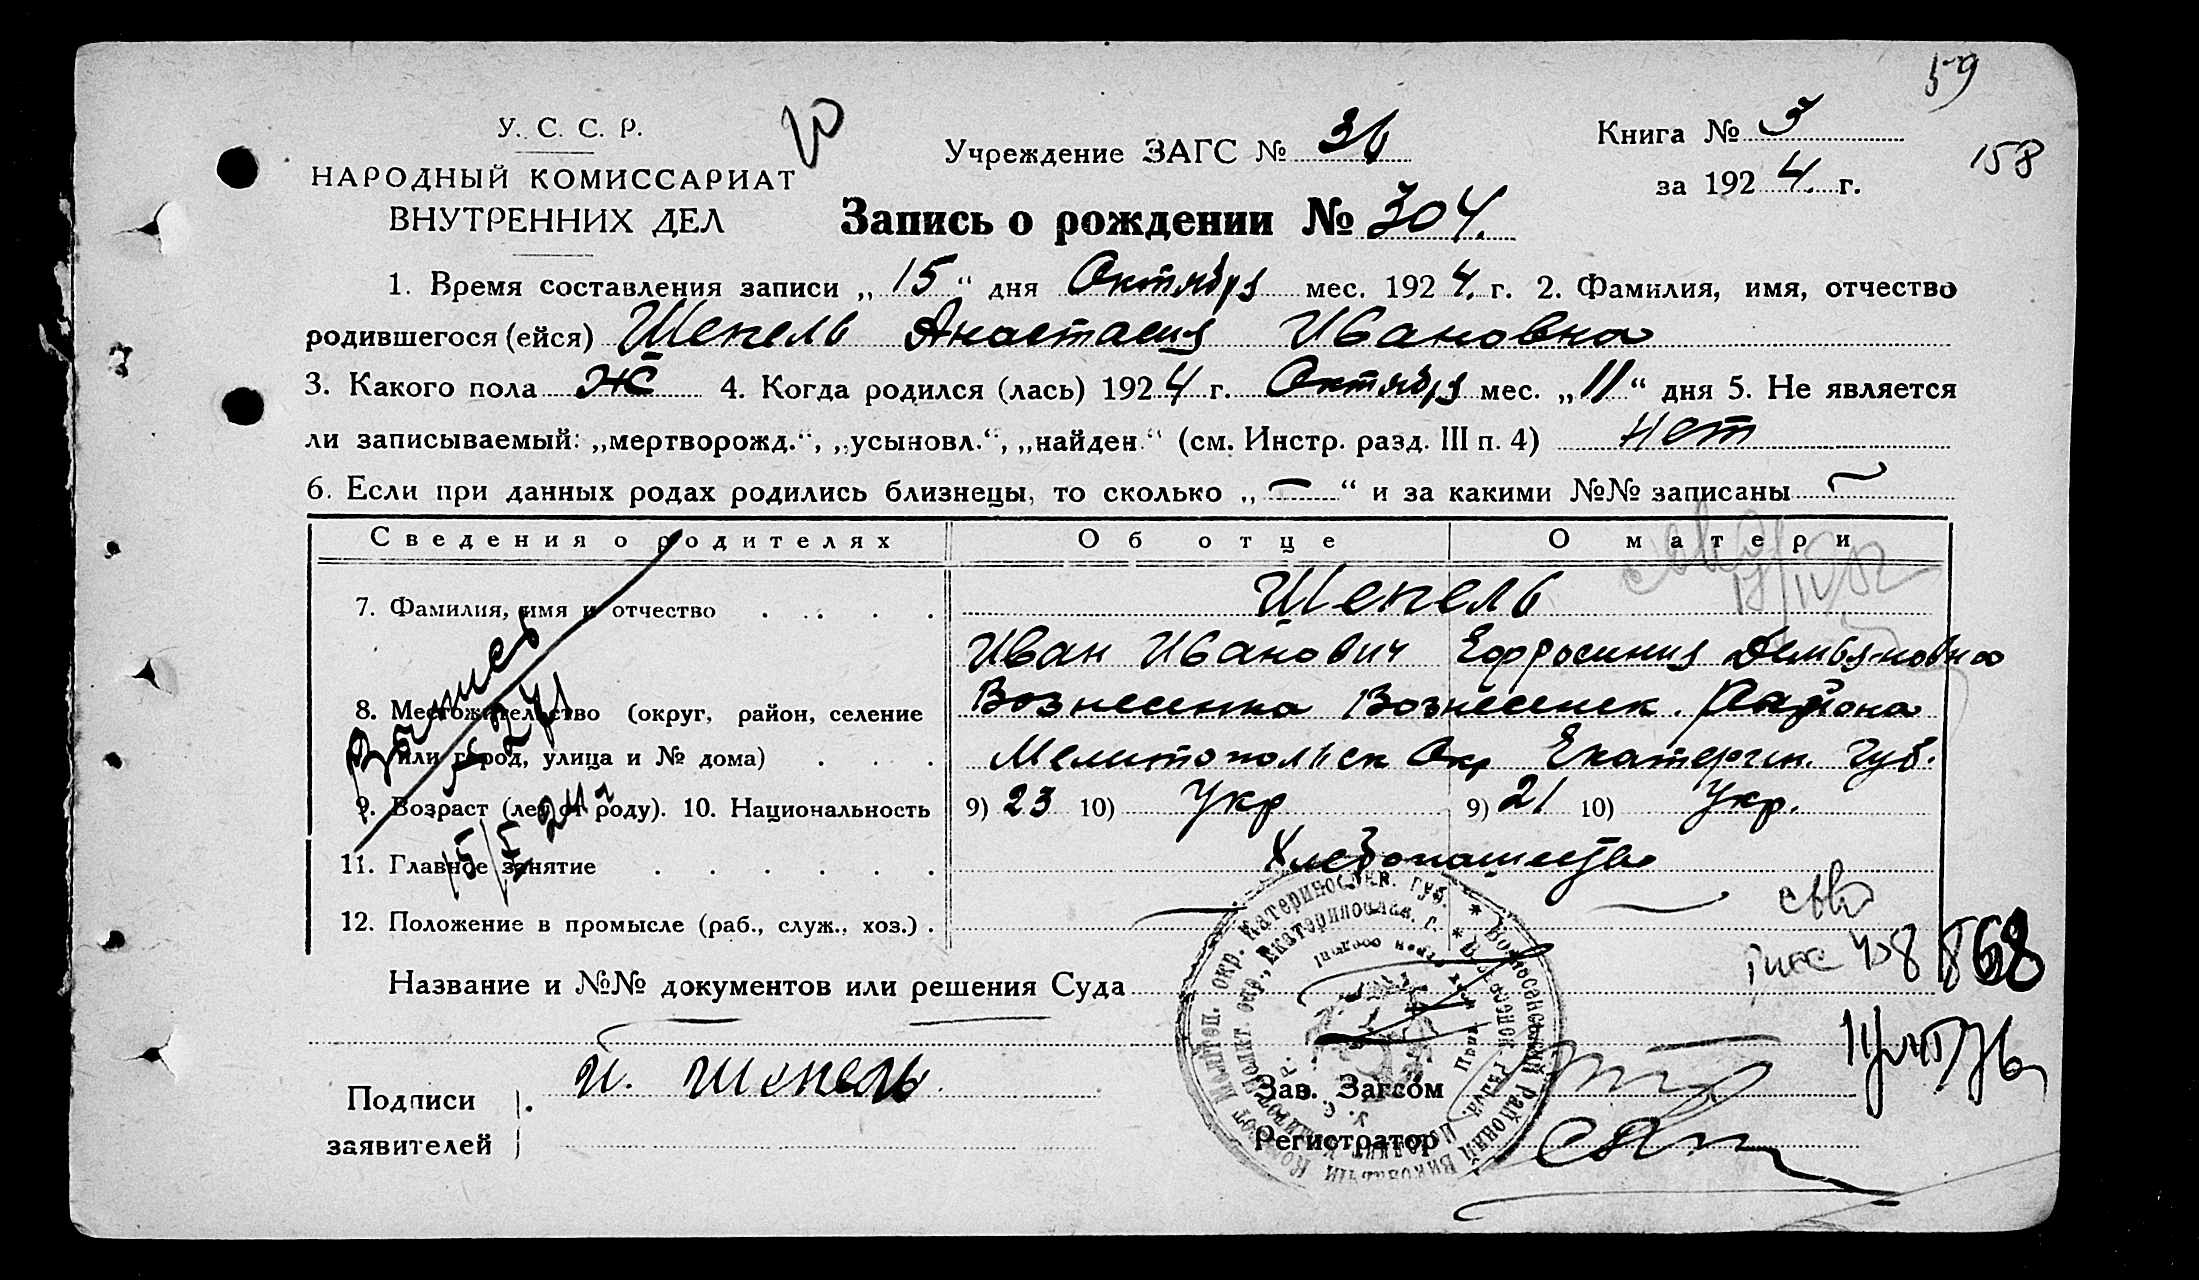 59
158
У. С. С. Р.
НАРОДНЫЙ КОМИССАРИАТ
ВНУТРЕННИХ ДЕЛ
Учреждение ЗАГС № 36
Книга № 3
за 1924. г.
Запись о рождении № 304.
1. Время составления записи „15“ дня Октября мес. 1924. г. 2. Фамилия, имя, отчество
родившегося (ейся) Шепель Анастасия Ивановна
3. Какого пола Ж 4. Когда родился (лась) 1924 г. Октября мес. „11“ дня 5. Не является
ли записываемый: „мертворожд.“, „усыновл.“, „найден“ (см. Инстр. разд. III п. 4) Нет
6. Если при данных родах родились близнецы, то сколько „—“ и за какими №№ записаны —
Сведения о родителях Об отце О матери
7. Фамилия, имя и отчество . . . . Шепель
Иван Иванович Ефросиния Демьяновна
8. Местожительство (округ, район, селение Вознесенка Вознесенск. Района
или город, улица и № дома) . . . Мелитопольск Окр Екатерин. Губ.
9. Возраст (лет от роду). 10. Национальность 9) 23 10) Укр 9) 21 10) Укр.
11. Главное занятие . . . . . . Хлебопашество
12. Положение в промысле (раб., служ., хоз.) . — —
Название и №№ документов или решения Суда
Подписи И. Шепель
заявителей
Зав. Загсом
Регистратор